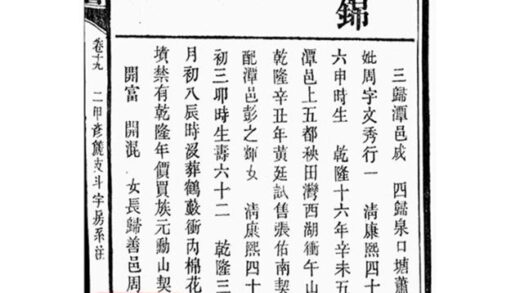 錦
三歸潭邑成 四歸泉口塘蕭
妣周字文秀行一 清康熙四十
六申時生 乾隆十六年辛未五
潭邑上五都秧田灣西湖衝午山
乾隆辛丑年黃廷試售張佑南契
配潭邑彭之輝女 清康熙四十
初三卯時生壽六十二 乾隆三
月初八辰時歿葬鶴藪衝丙棉花
墳禁有乾隆年價買族元動山契
開富 開混 女長歸善邑周
卷十九 二甲彥支斗字房系注